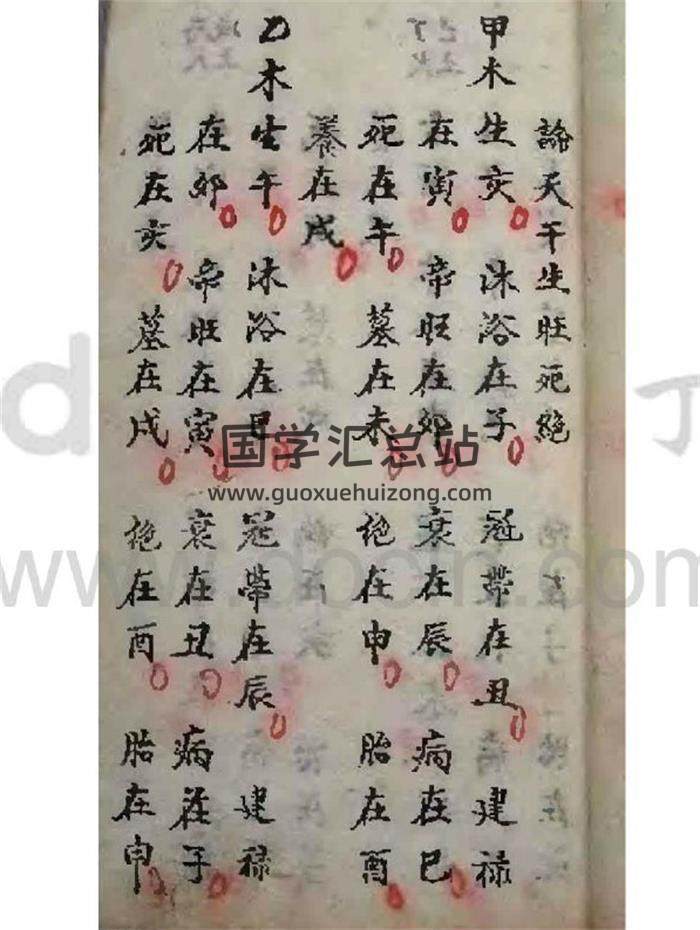 論天干生旺死絕
甲木生亥 沐浴在子 冠帶在丑 建禄
在寅 帝旺在卯 衰在辰 病在巳
死在午 墓在未 絕在申 胎在酉
養在戌
乙木生午 沐浴在巳 冠帶在辰 建禄
在卯 帝旺在寅 衰在丑 病在子
死在亥 墓在戌 絕在酉 胎在申
国学汇总站
www.guoxuehuizong.com